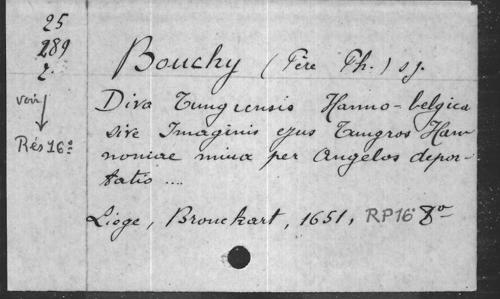 25
289
2.
voir
Rés 16º
Bouchy (Père Ph.) s.j.
Diva Tungrensis Hanno-belgica
sive Imaginis ejus Tungros Han
noniae mira per Angelos depor-
tatio ....
Liège, Bronckart, 1651, RP16º 8º